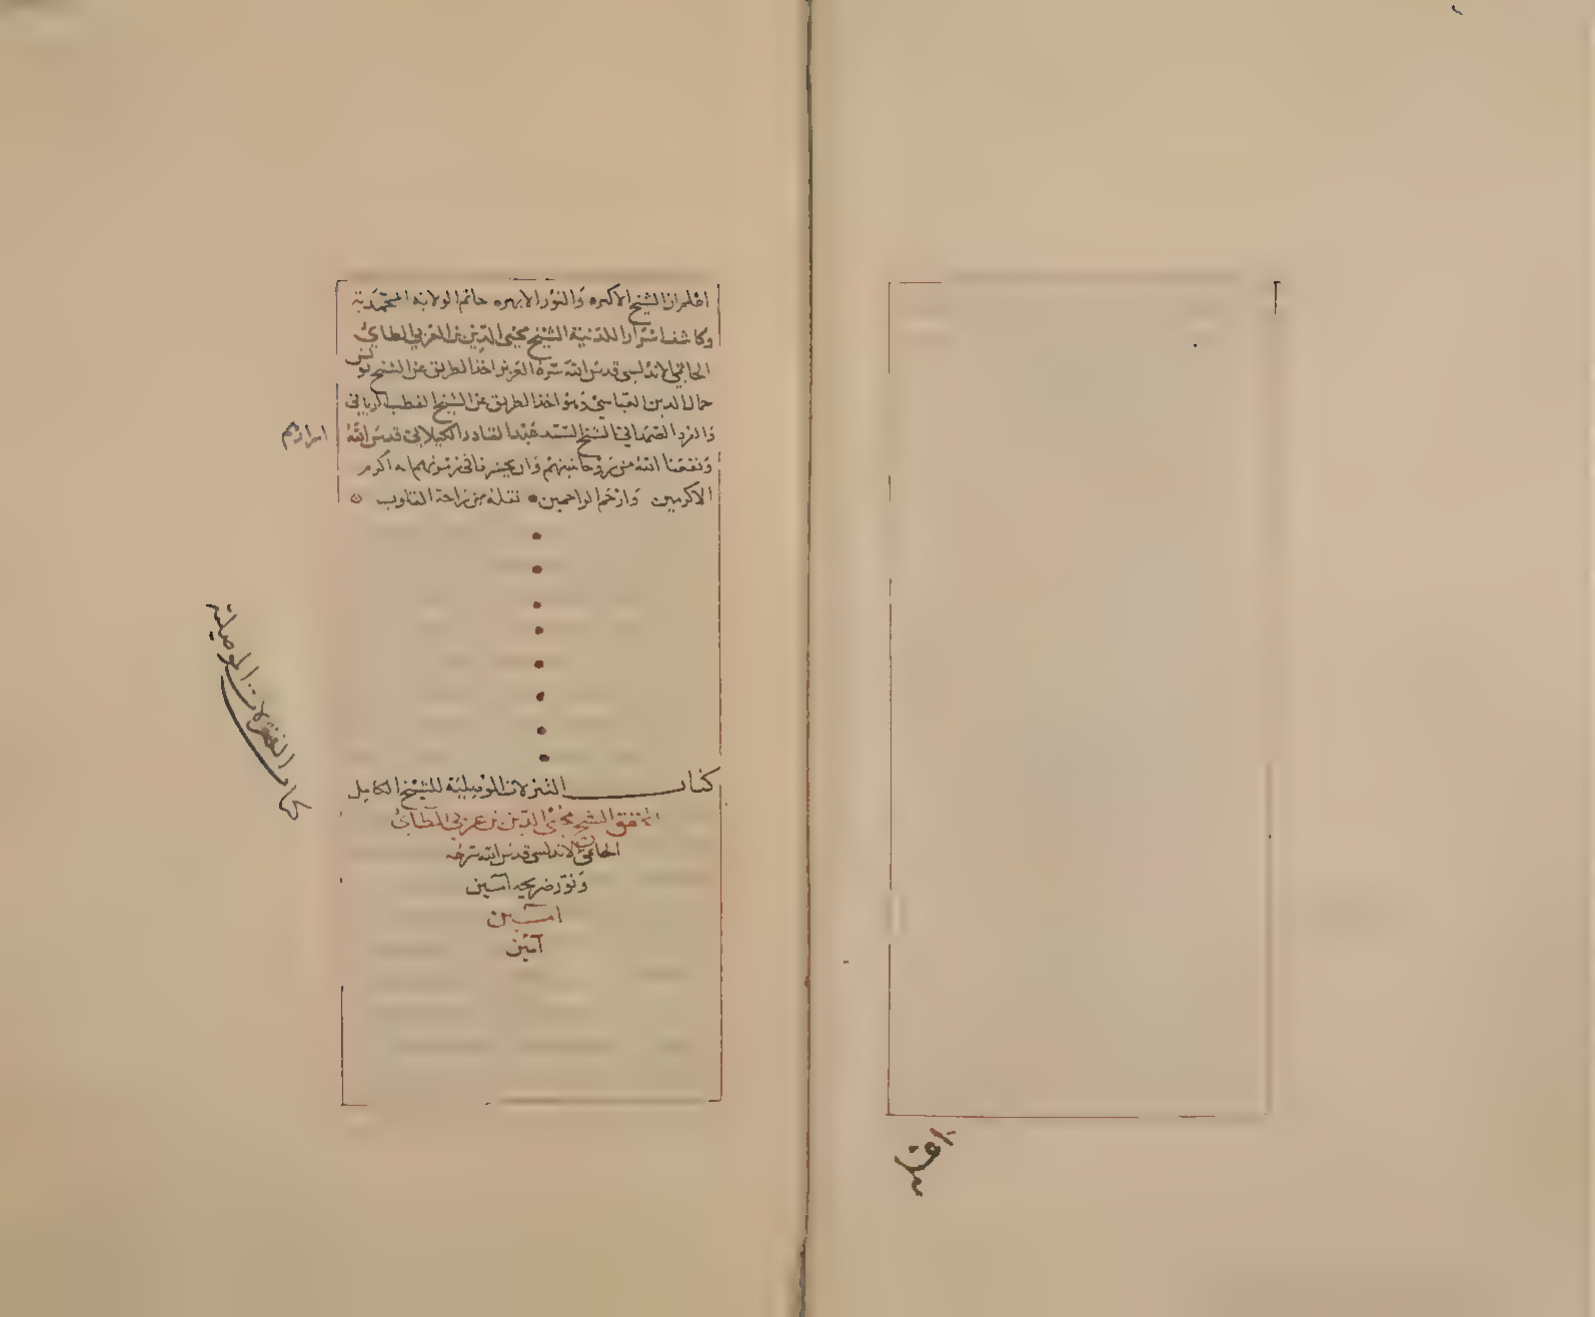 اعلم ان الشيخ الاكبر والنور الابهر خاتم الولاية المحمدية
وكاشف اسرار اللدنية الشيخ محيي الدين بن العربي الطائي
الحاتمي الاندلسي قدس الله سره العزيز اخذ الطريق عن الشيخ يونس
جمال الدين العباسي وهو اخذ الطريق عن الشيخ القطب الرباني
والفرد الصمداني الشيخ السيد عبد القادر الكيلاني قدس الله
اسرارهم
ونفعنا الله من روحانيتهم وان يحشرنا في زمرتهم اكرم
الاكرمين وارحم الراحمين نقله من راحة القلوب
كتاب التنزلات الموصلية
كتاب التنزلات الموصلية للشيخ الكامل
المحقق الشيخ محيي الدين بن عربي الطائي
الحاتمي الاندلسي قدس الله سره
ونور ضريحه آمين
آمين
آمين